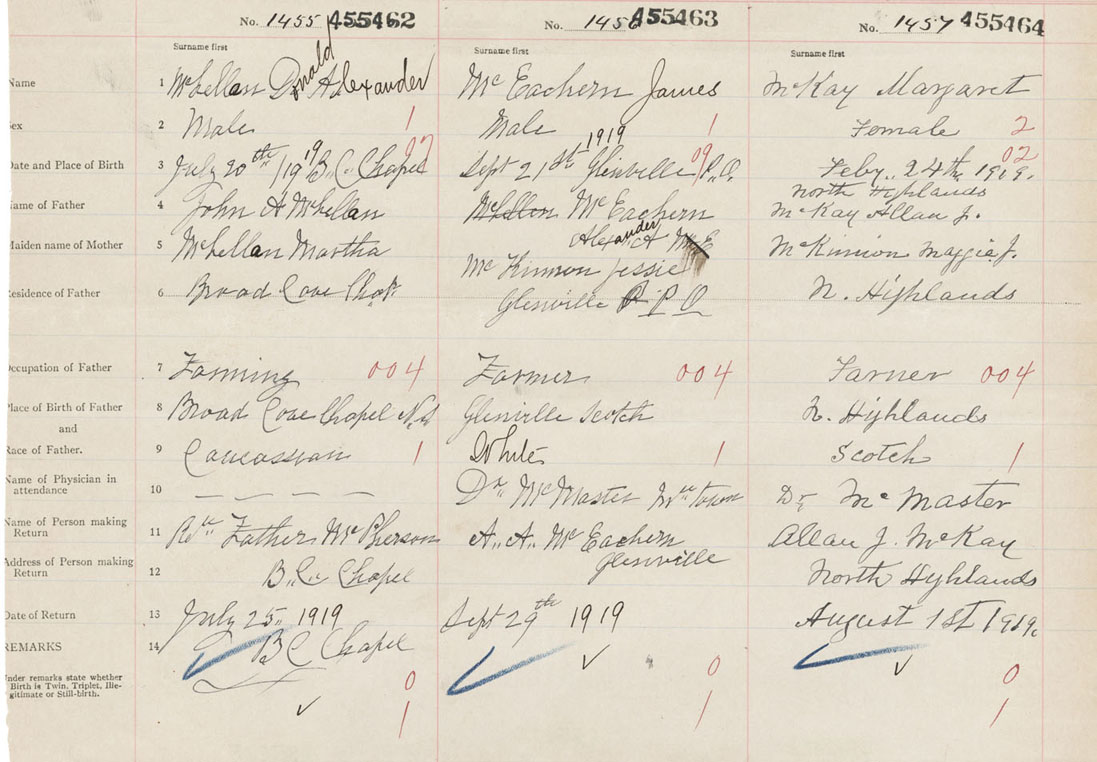 No. 1455 455462
No. 1456 455463
No. 1457 455464
Surname first
Surname first
Surname first
Name 1 McLellan Donald Alexander
Mc Eachern James
McKay Margaret
Sex 2 Male 1
Male 1
Female 2
Date and Place of Birth 3 July 20th /1919 B. C. Chapel 07
Sept 21st 1919 Glenville P.O. 09
Feby. 24th 1919. 02
North Highlands
Name of Father 4 John A McLellan
McEachern
Alexander A
McKay Allan J.
Maiden name of Mother 5 McLellan Martha
Mc Kinnon Jessie
McKinnon Maggie J.
Residence of Father 6 Broad Cove Chap.
Glenville P.O
N. Highlands
Occupation of Father 7 Farming 004
Farmer 004
Farmer 004
Place of Birth of Father 8 Broad Cove Chapel N.S
Glenville Scotch
N. Highlands
and
Race of Father. 9 Caucassian 1
White 1
Scotch 1
Name of Physician in
attendance 10 — — — —
Dr. McMaster
Dr. McMaster
Name of Person making
Return 11 Rev Father McPherson
A. A. McEachern
Allan J. McKay
Address of Person making
Return 12 B. C. Chapel
Glenville
North Hyhlands
Date of Return 13 July 25. 1919
Sept 29th 1919
August 1st 1919.
REMARKS 14 B C Chapel
Under remarks state whether
Birth is Twin, Triplet, Ille-
gitimate or Still-birth.
0
0
0
1
1
1